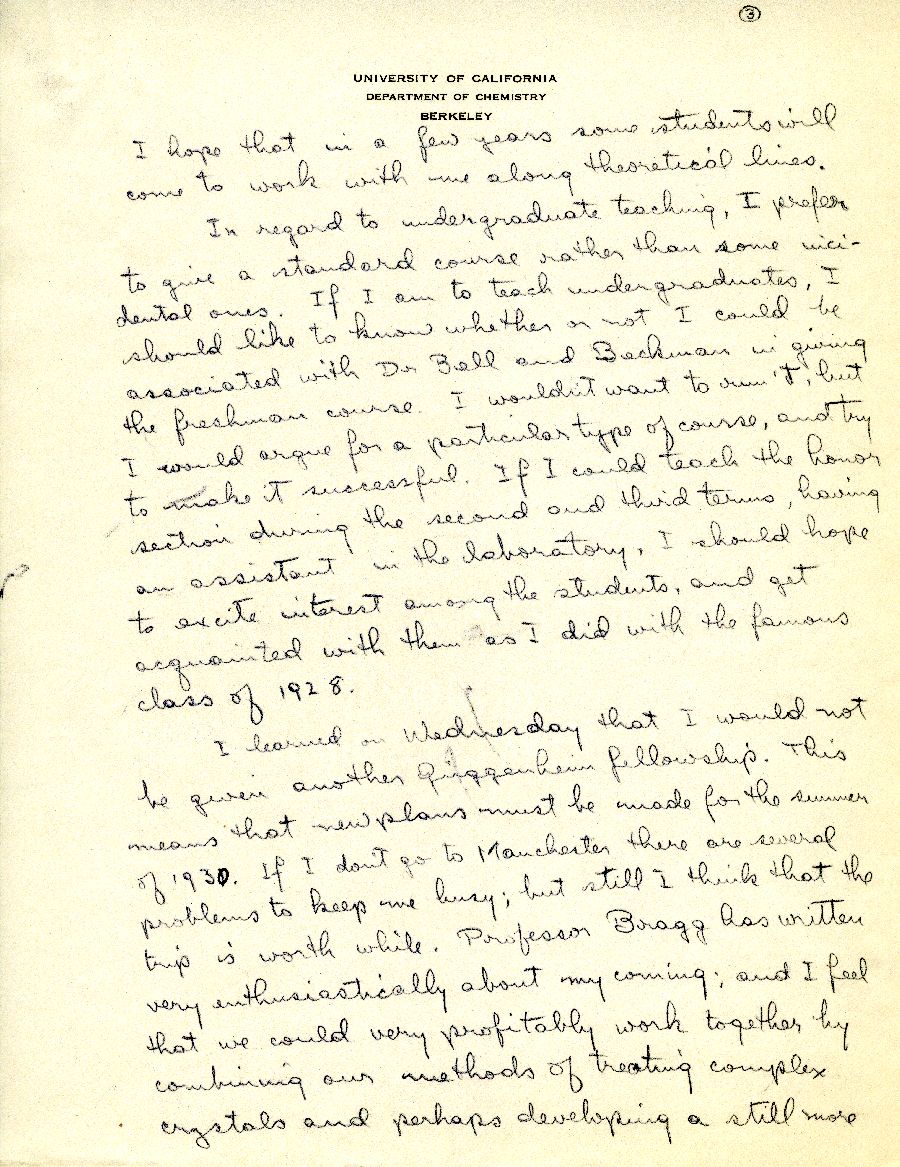 3
UNIVERSITY OF CALIFORNIA
DEPARTMENT OF CHEMISTRY
BERKELEY
I hope that in a few years some students will
come to work with me along theoretical lines.
In regard to undergraduate teaching, I prefer
to give a standard course rather than some inci-
dental ones. If I am to teach undergraduates, I
should like to know whether or not I could be
associated with Dr Bell and Beckman in giving
the freshman course. I wouldn't want to run it, but
I would argue for a particular type of course, and try
to make it successful. If I could teach the honor
section during the second and third terms, having
an assistant in the laboratory, I should hope
to excite interest among the students, and get
acquainted with them as I did with the famous
class of 1928.
I learned on Wednesday that I would not
be given another Guggenheim fellowship. This
means that new plans must be made for the summer
of 1930. If I don't go to Manchester there are several
problems to keep me busy; but still I think that the
trip is worth while. Professor Bragg has written
very enthusiastically about my coming; and I feel
that we could very profitably work together by
combining our methods of treating complex
crystals and perhaps developing a still more